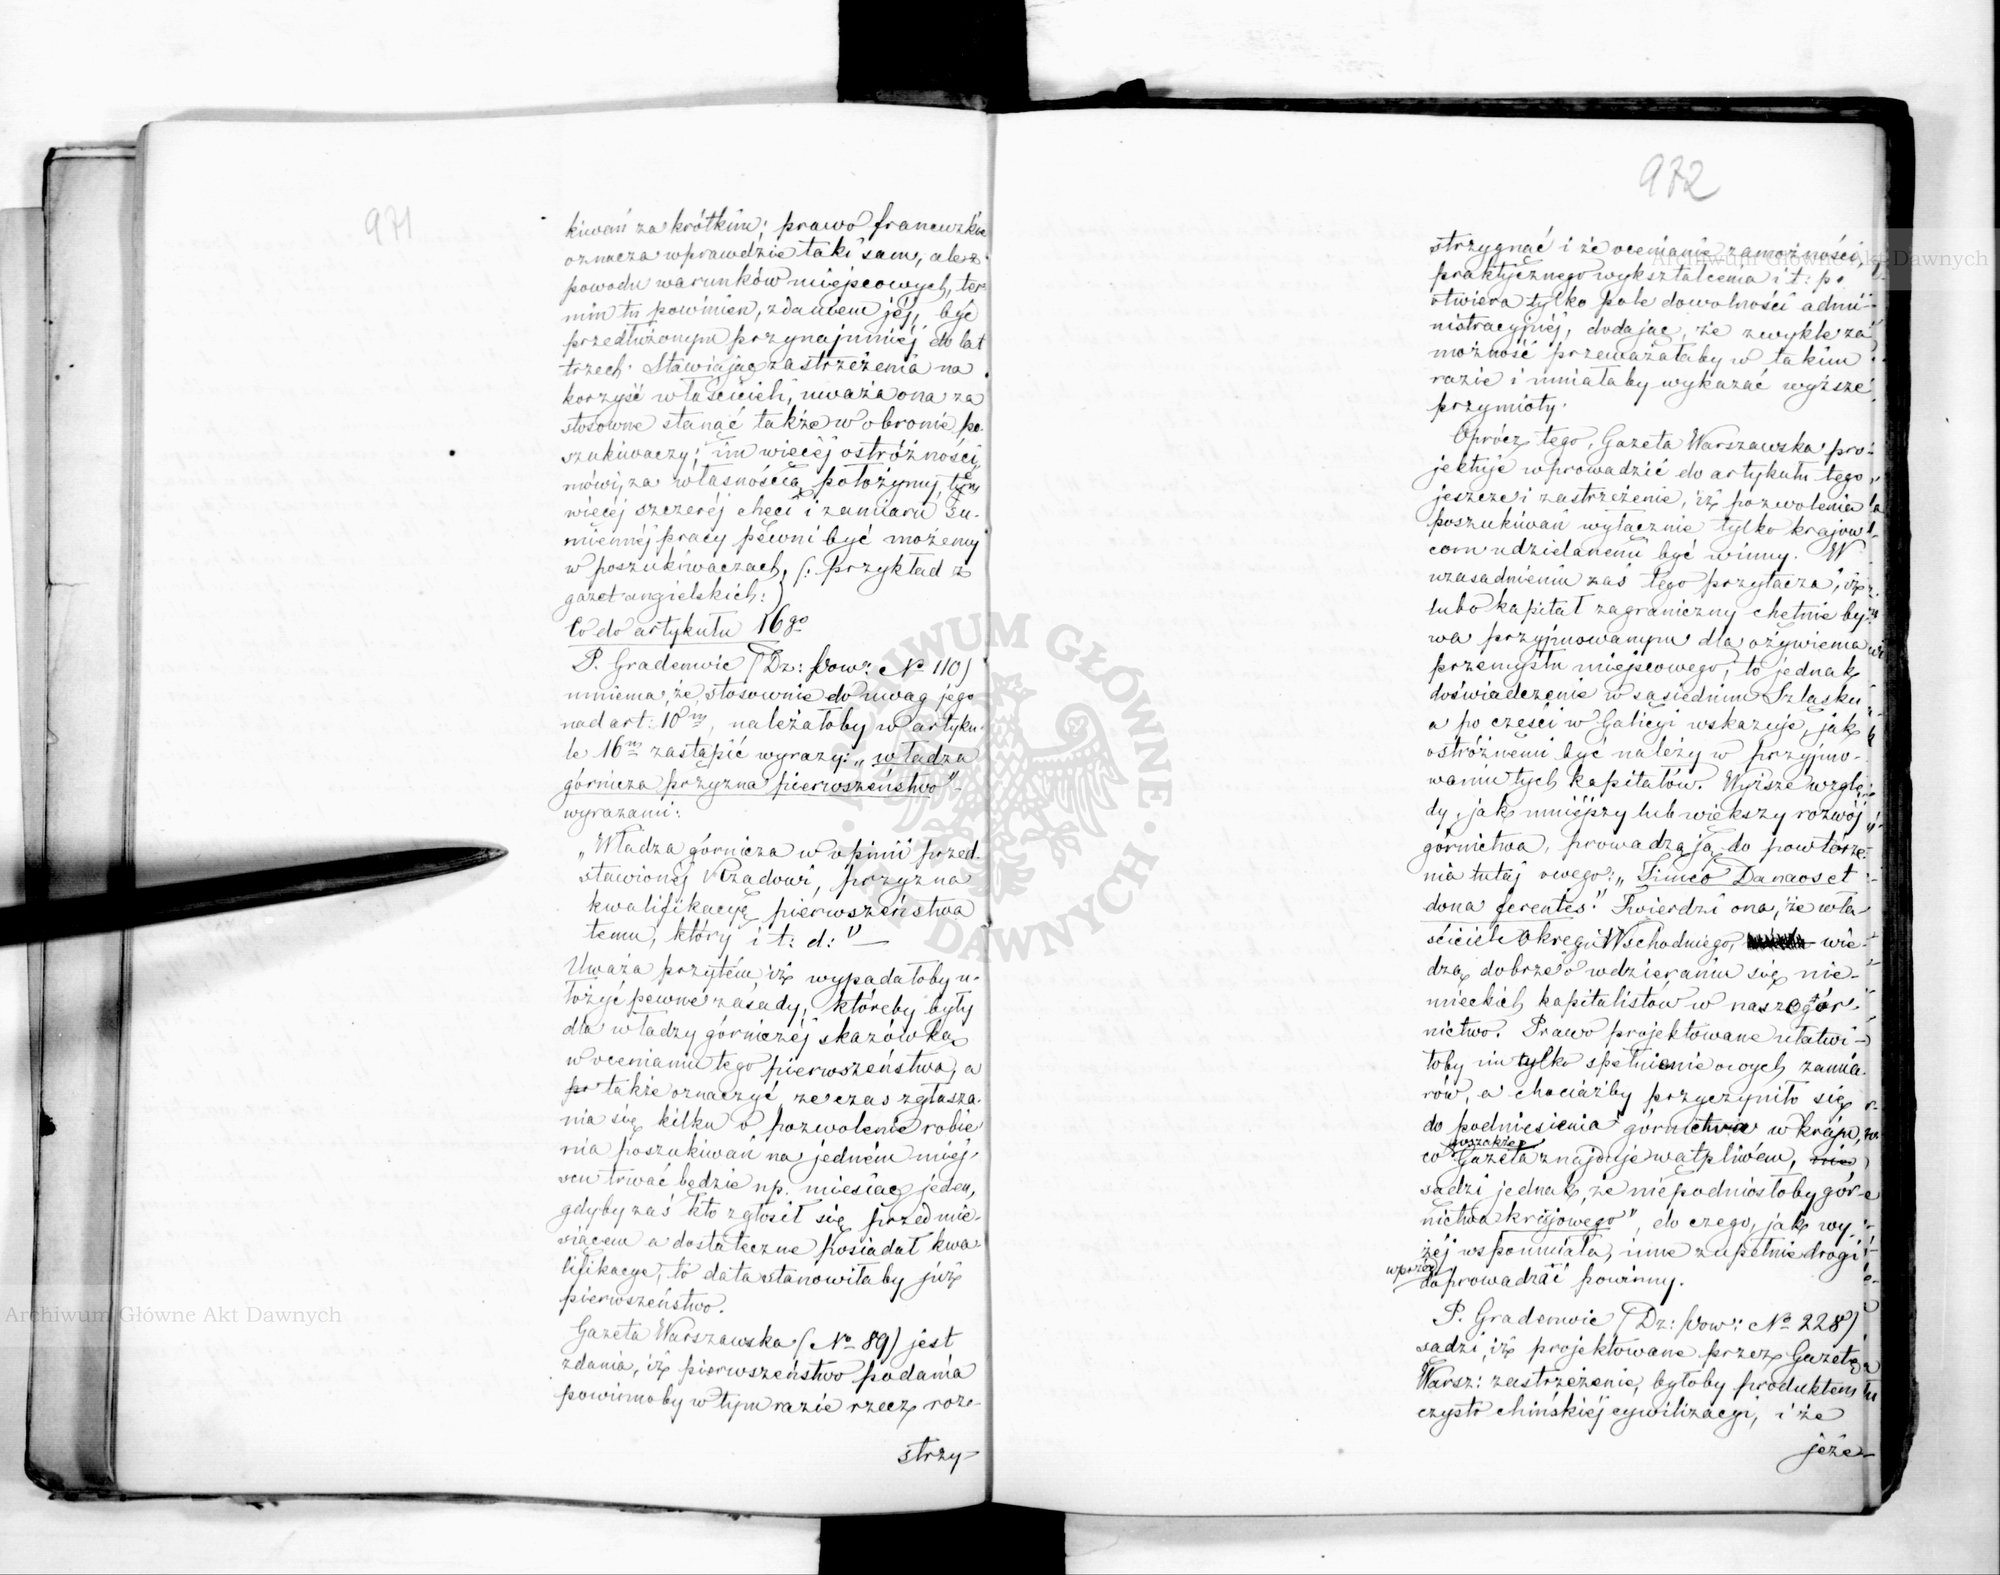 971
kiwań za krótkim; prawo francuzkie
oznacza wprawdzie taki sam, ale z
powodu warunków miejscowych, ter-
min tu powinien, zdaniem jéj, być
przedłużonym przynajmniéj do lat
trzech. Stawiając zastrzeżenia na
korzyść właścicieli, uważa ona za
stosowne stanąć także w obronie po-
szukiwaczy; im więcéj ostróżności
mówi, za własnością położymy, tém
więcéj szczeréj chęci i zamiaru su-
miennéj pracy pewni być możemy
w poszukiwaczach, (: przykład z
gazet angielskich:)
Co do artykułu 16go
P. Gradenwic (Dz: Pow: No 110)
mniema, że stosownie do uwag jego
nad art: 10m, należałoby w artyku-
le 16m zastąpić wyrazy: „władza
górnicza przyzna pierwszeństwo"
wyrazami:
„Władza górnicza w opinii przed-
stawionéj Rządowi, przyzna
kwalifikacyę pierwszeństwa
temu, który i t: d:" —
Uważa przytém, iż wypadałoby u-
łożyć pewne zasady, któreby były
dla władzy górniczéj skazówką
w ocenianiu tego pierwszeństwa, a
po także oznaczyć, że czas zgłasza-
nia się kilku o pozwolenie robie
nia poszukiwań na jedném miej-
scu trwać będzie np. miesiąc jeden,
gdyby zaś kto zgłosił się przed mie-
siącem a dostateczne posiadał kwa-
lifikacye, to data stanowiłaby już
pierwszeństwo.
Gazeta Warszawska (No 89) jest
zdania, iż pierwszeństwo podania
powinnoby w tym razie rzecz roze-
strzy-
972
strzygnąć i że ocenianie zamożności,
praktycznego wykształcenia i t: p:
otwiera tylko pole dowolności admi-
nistracyjnéj, dodając, że zwykle za
możność przeważałaby w takim
razie i umiałaby wykazać wyższe
przymioty.
Oprócz tego, Gazeta Warszawska pro-
jektuje wprowadzić do artykułu tego
jeszcze i zastrzeżenie, iż pozwolenia
poszukiwań wyłącznie tylko krajow-
com udzielanemi być winny. W
uzasadnieniu zaś tego przytacza, iż
lubo kapitał zagraniczny chętnie by-
wa przyjmowanym dla ożywienia
przemysłu miejscowego, to jednak
doświadczenie w sąsiednim Szlasku
a po części w Galicyi wskazuje, jak
ostróżnemi być należy w przyjmo-
waniu tych kapitałów. Wyższe wzglę
dy, jak mniejszy lub większy rozwój
górnictwa, prowadzą ją do powtórze-
nia tutaj owego: „Timeo Danaos et
dona ferentes." Twierdzi ona, że wła-
ściciele Okręgu Wschodniego, wie-
dzą dobrze o wdzieraniu się nie-
mieckich kapitalistów w nasze gór-
nictwo. Prawo projektowane ułatwi-
łoby im tylko spełnienie owych zamia-
rów, a chociażby przyczyniło się
do podniesienia górnictwa w kraju,
wszakże
co Gazeta znajduje wątpliwém, nie
sądzi jednak, że nie podniosłoby gór-
nictwa krajowego", do czego, jak wy-
żéj wspomniała, inne zupełnie drogi
wprzód
doprowadzać powinny.
P. Gradenwic (Dz: Pow: No 228)
sądzi, iż projektowane przez Gazetę
Warsz: zastrzeżenie, byłoby produktem
czysto chińskiéj cywilizacyi, i że
jeże-
Archiwum Główne Akt Dawnych
Archiwum Główne Akt Dawnych
ARCHIWUM GŁÓWNE · AKT DAWNYCH ·